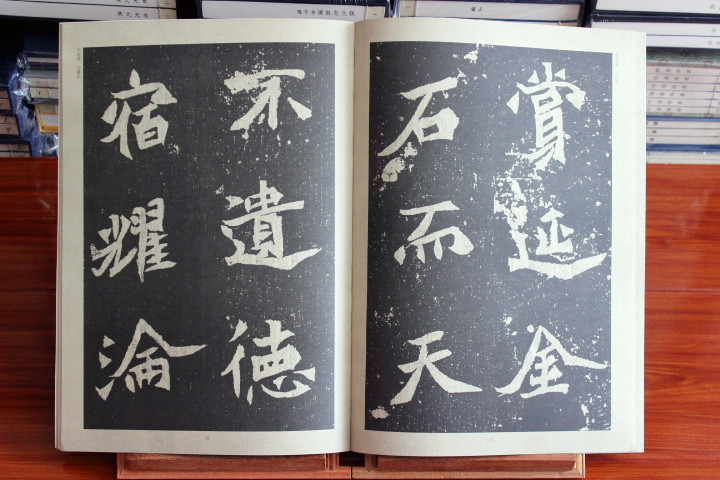 賞延金
石而天
不遺德
宿耀淪